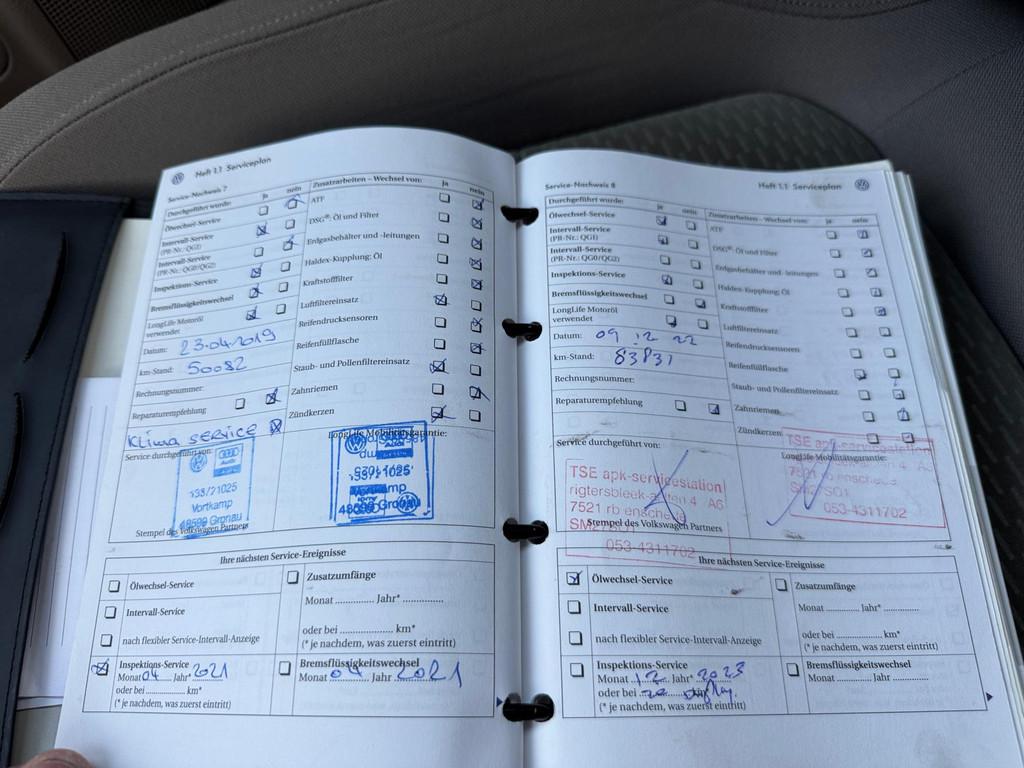 Heft 1.1 Serviceplan
Service-Nachweis 7
Durchgeführt wurde: ja nein
Ölwechsel-Service
Intervall-Service
(PR-Nr.: QG1)
Intervall-Service
(PR-Nr.: QG0/QG2)
Inspektions-Service
Bremsflüssigkeitswechsel
LongLife Motoröl
verwendet
Datum: 23.04.2019
km-Stand: 50082
Rechnungsnummer:
Reparaturempfehlung
Klima SERVICE
Zusatzarbeiten – Wechsel von: ja nein
ATF
DSG®: Öl und Filter
Erdgasbehälter und -leitungen
Haldex-Kupplung: Öl
Kraftstofffilter
Luftfiltereinsatz
Reifendrucksensoren
Reifenfüllflasche
Staub- und Pollenfiltereinsatz
Zahnriemen
Zündkerzen
Service durchgeführt von:
LongLife Mobilitätsgarantie:
Audi
Vortkamp
48599 Gronau
Vortkamp
48599 Gronau
Stempel des Volkswagen Partners
Ihre nächsten Service-Ereignisse
Ölwechsel-Service
Intervall-Service
nach flexibler Service-Intervall-Anzeige
Inspektions-Service
Monat 04 Jahr* 2021
oder bei ............ km*
(* je nachdem, was zuerst eintritt)
Zusatzumfänge
Monat ............ Jahr* ............
oder bei ............ km*
(* je nachdem, was zuerst eintritt)
Bremsflüssigkeitswechsel
Monat 04 Jahr 2021
Service-Nachweis 8 Heft 1.1 Serviceplan
Durchgeführt wurde: ja nein
Ölwechsel-Service
Intervall-Service
(PR-Nr.: QG1)
Intervall-Service
(PR-Nr.: QG0/QG2)
Inspektions-Service
Bremsflüssigkeitswechsel
LongLife Motoröl
verwendet
Datum: 09 12 22
km-Stand: 83831
Rechnungsnummer:
Reparaturempfehlung
Zusatzarbeiten – Wechsel von: ja nein
ATF
DSG®: Öl und Filter
Erdgasbehälter und -leitungen
Haldex-Kupplung: Öl
Kraftstofffilter
Luftfiltereinsatz
Reifendrucksensoren
Reifenfüllflasche
Staub- und Pollenfiltereinsatz
Zahnriemen
Zündkerzen
Service durchgeführt von:
TSE apk-servicestation
7521 rb enschede
Stempel des Volkswagen Partners
053-4311702
TSE apk-servicestation
LongLife Mobilitätsgarantie:
053-4311702
Ihre nächsten Service-Ereignisse
Ölwechsel-Service
Intervall-Service
nach flexibler Service-Intervall-Anzeige
Inspektions-Service
Monat 12 Jahr* 2023
oder bei
(* je nachdem, was zuerst eintritt)
Zusatzumfänge
Monat ............ Jahr* ............
oder bei ............ km*
(* je nachdem, was zuerst eintritt)
Bremsflüssigkeitswechsel
Monat ............ Jahr ............